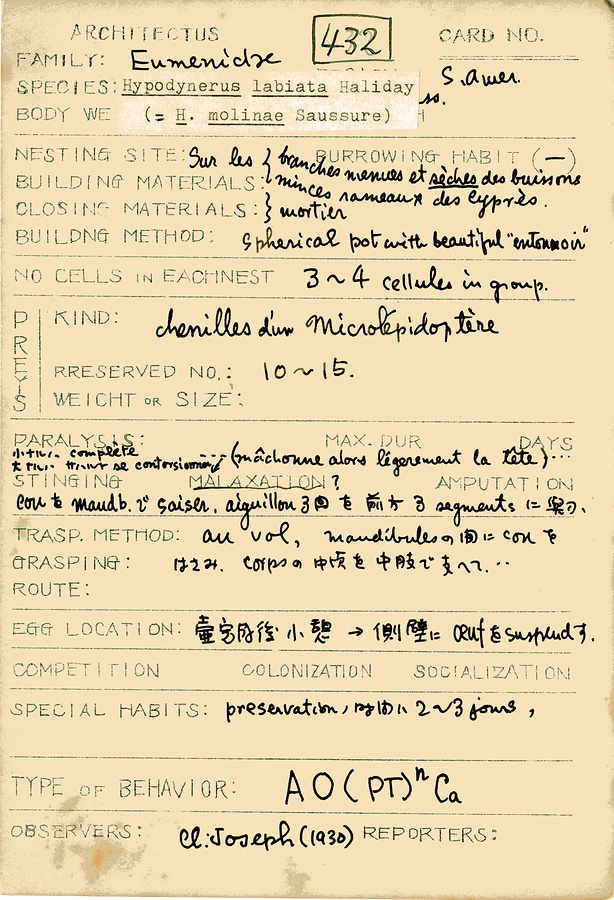 ARCHITECTUS 432 CARD NO.
FAMILY: Eumenidae
S. amer.
SPECIES: Hypodynerus labiata Haliday
BODY WE (= H. molinae Saussure)
NESTING SITE: Sur les { branches menues et sèches des buissons BURROWING HABIT (—)
BUILDING MATERIALS: minces rameaux des Cyprès.
CLOSING MATERIALS: } mortier
BUILDNG METHOD: Spherical pot with beautiful "entonnoir"
NO CELLS IN EACHNEST 3~4 cellules in group.
PREYS
KIND: chenilles d'un Microlépidoptère
RRESERVED NO.: 10~15.
WEIGHT OR SIZE:
PARALYSIS: MAX. DUR DAYS
complète
se contorsionner (mâchonne alors légerement la tête)...
STINGING MALAXATION? AMPUTATION
cou を mandb. で saiser, aiguillon 3回 を 前方 3 segments に
TRASP. METHOD: au vol, mandibules の間に cou を
GRASPING: はさみ. corps の 中央を 中肢で支へて...
ROUTE:
EGG LOCATION: 壷完成後 小憩 → 側壁に œuf を suspend す.
COMPETITION COLONIZATION SOCIALIZATION
SPECIAL HABITS: preservation, 2~3 jours,
TYPE OF BEHAVIOR: AO(PT)ⁿCa
OBSERVERS: Cl. Joseph (1930) REPORTERS: